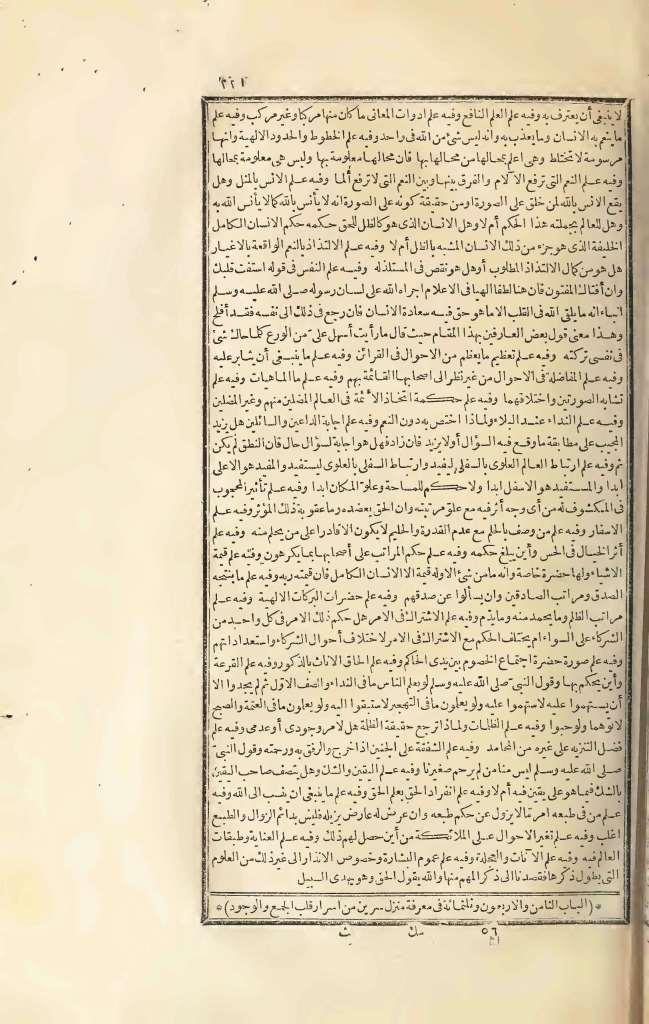 ٣٢١
لا ينبغى أن يعترف به وفيه علم العلم النافع وفيه علم ادوات المعانى ما كان منها مركبا وغير مركب وفيه علم
ما ينعم به الانسان وما يعذب به وانه ليس شئ من الله فى راحد وفيه علم الخطوط والحدود الالهية وانها
مرسومة لا تختلط وهى اعلم بمحالها من محالها بها فان محالها معلومة بها وليس هى معلومة بمحالها
وفيه علم النعم التى ترفع الآلام والفرق بينها وبين النعم التى لا ترفع ألما وفيه علم الانس بالمثل وهل
يقع الانس بالله لمن خلق على الصورة او من حقيقة كونه على الصورة انه لا يأنس بالله كما لا يأنس الله به
وهل للعالم بجملته هذا الحكم أم لا وهل الانسان الذى هو كالظل للحق حكمه حكم الانسان الكامل
الخليفة الذى هو جزء من ذلك الانسان المشبه بالظل أم لا وفيه علم الالتذاذ بالنعم الواقعة بالاغيار
هل هو من كمال الالتذاذ المطلوب أو هل هو نقص فى المستلذ له وفيه علم النفس فى قوله استفت قلبك
وان أفتاك المفتون فان هنا طقا الهيا فى الاعلام اجراه الله على لسان رسوله صلى الله عليه وسلم
انباءانه ما يلقى الله فى القلب الا ما هو حق فيه سعادة الانسان فان رجع فى ذلك الى نفسه فقد أفلح
وهذا معنى قول بعض العارفين بهذا المقام حيث قال ما رأيت أسهل على من الورع كلما حاك شئ
فى نفسى تركته وفيه علم تعظيم ما يعظم من الاحوال فى القرائن وفيه علم ما ينبغى أن يثابر عليه
وفيه علم المفاضلة فى الاحوال من غير نظر الى اصحابها القائمة بهم وفيه علم ما الماهيات وفيه علم
تشابه الصورتين واختلافهما وفيه علم حكمة اتخاذ الأئمة فى العالم المضلين منهم وغير المضلين
وفيه علم النداء عند البلاء ولماذا اختص به دون النعم وفيه علم اجابة الداعين والسائلين هل يزيد
المجيب على مطابقة ما وقع فيه السؤال أو لا يزيد فان زاد فهل هو اجابة لسؤال حال فان النطق لم يكن
ثم وفيه علم ارتباط العالم العلوى بالسفلى ليفيد وارتباط السفلى بالعلوى ليستفيد والمفيد هو الاعلى
ابدا والمستفيد هو الاسفل ابدا ولا حكم للمساحة وعلو المكان ابدا وفيه علم تأثير المحجوب
فى المكشوف له من أى وجه أثر فيه مع علو مرتبته وان الحق يعضده وما عقوبة ذلك المؤثر وفيه علم
الاسفار وفيه علم من وصف بالحلم مع عدم القدرة والحليم لا يكون الا قادرا على من يحلم منه وفيه علم
أثر الخيال فى الحس وأين يبلغ حكمه وفيه علم حكم المراتب على أصحابها بما يكرهون وفيه علم قيمة
الاشياء ولها حضرة خاصة وانه ما من شئ الا وله قيمة الا الانسان الكامل فان قيمته ربه وفيه علم ما ينتجه
الصدق ومراتب الصادقين وان يسألوا عن صدقهم وفيه علم حضرات البركات الالهية وفيه علم
مراتب الظلم وما يحمد منه وما يذم وفيه علم الاشتراك فى الامر هل حكم ذلك الامر فى كل واحد من
الشركاء على السواء ام يختلف الحكم مع الاشتراك فى الامر لاختلاف أحوال الشركاء واستعداداتهم
وفيه علم صورة حضرة اجتماع الخصوم بين يدى الحاكم وفيه علم الحاق الاناث بالذكور وفيه علم القرعة
وأين يحكم بها وقول النبى صلى الله عليه وسلم لو يعلم الناس ما فى النداء والصف الاول ثم لم يجدوا الا
أن يستهموا عليه لاستهموا عليه ولو يعلمون ما فى التهجير لاستبقوا اليه ولو يعلمون ما فى العتمة والصبح
لأتوهما ولو حبوا وفيه علم الظلمات ولماذا ترجع حقيقة الظلمة هل لامر وجودى أو عدمى وفيه علم
فضل التنزيه على غيره من المحامد وفيه علم الشفقة على الجنين اذا خرج والرفق به ورحمته وقول النبى
صلى الله عليه وسلم ليس منا من لم يرحم صغيرنا وفيه علم اليقين والشك وهل يتصف صاحب اليقين
بالشك فيما هو على يقين فيه أم لا وفيه علم انفراد الحق بعلم الحق وفيه علم ما ينبغى ان ينسب الى الله وفيه
علم من فى طبعه امر تما لا يزول عن حكم طبعه وان عرض له عارض يزيله فليس بدائم الزوال والطبع
اغلب وفيه علم تغير الاحوال على الملائكة من أين حصل لهم ذلك وفيه علم العناية وطبقات
العالم فيه وفيه علم الآيات والعجلة وفيه علم عموم البشارة وخصوص الانذار الى غير ذلك من العلوم
التى يطول ذكرها فقصدنا الى ذكر المهم منها والله يقول الحق وهو يهدى السبيل
* (الباب الثامن والاربعون وثلثمائة فى معرفة منزل سرين من اسرار قلب الجمع والوجود) *